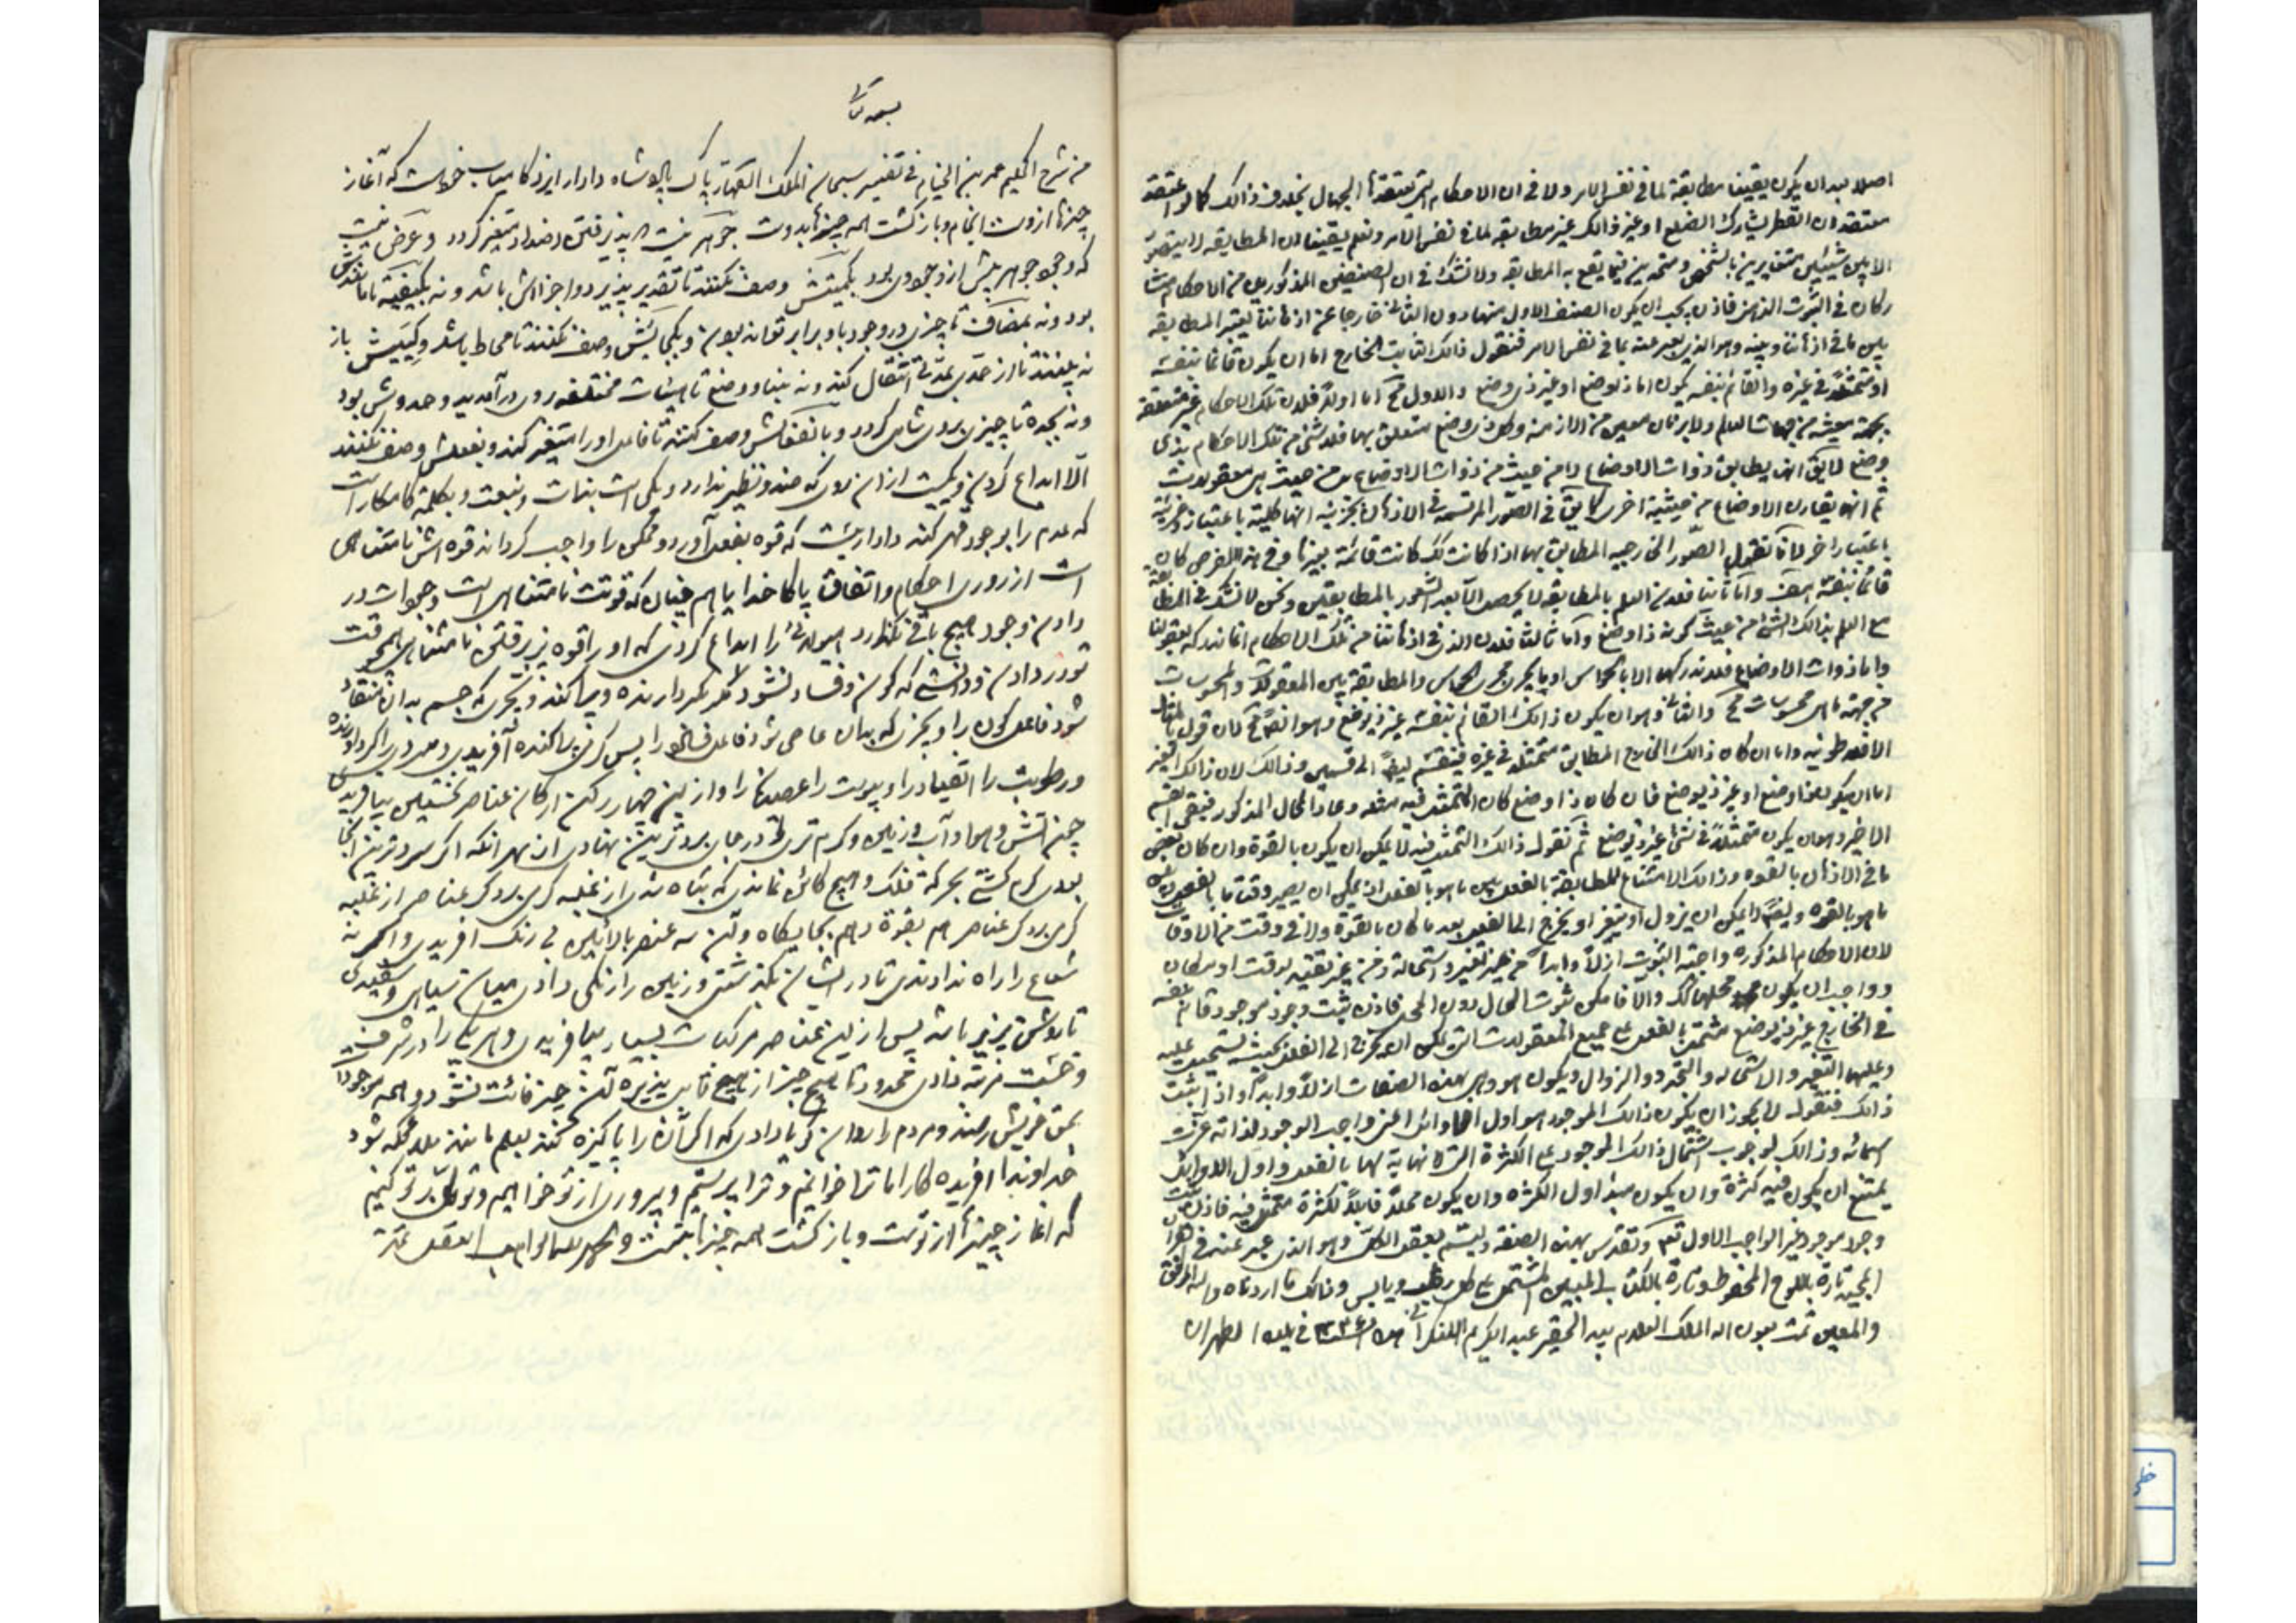 اصلا بعد ان یکون یقینا مطابقة لما فی نفس الامر ولا فی ان الاحکام التی یعتقدها الجهال بخلاف ذالک کما لو اعتقد
معتقد ان القطر یشارک الضلع او غیر ذالک غیر مطابقة لما فی نفس الامر ونعلم یقینا ان المطابقة لا یتصور
الا بین شیئین متغایرین بالتشخص ومتحدین فیما یقع به المطابقة ولا نشک فی ان الصنفین المذکورین من الاحکام متشا
رکان فی الثبوت الذهنی فاذن یجب ان یکون للصنف الاول منهما دون الثانی خارجا عن اذهاننا یعتبر المطابقة
بین ما فی اذهاننا وبینه وهو الذی یعبر عنه بما فی نفس الامر فنقول ذالک الثابت الخارج اما ان یکون قائما بنفسه
او متمثلا فی غیره والقائم بنفسه یکون اما ذا وضع او غیر ذی وضع والاول مح اما اولا فلان تلک الاحکام غیر متعلقة
بجهة معینة من جهات العالم ولا بزمان معین من الازمنة وکل ذی وضع متعلق بهما فلا شئ من تلک الاحکام بذی
وضع لا یق انه یطابق ذوات الاوضاع لا من حیث هی ذوات الاوضاع بل من حیث هی معقولات
ثم انه یقارن الاوضاع من حیثیة اخری کما یق فی الصور المرتسمة فی الاذهان الجزئیة انها کلیة باعتبار وجزئیة
باعتبار اخر لانا نقول الصور الخارجیة المطابق بها اذا کانت کک کانت قائمة بغیرها وفی هذا الفرض کان
قائما بنفسه هف واما ثانیا فلان العلم بالمطابقة لا یحصل الا بعد الشعور بالمطابقین ونحن لا نشک فی المطابقة
مع الجهل بذالک الشئ من حیث کونه ذا وضع واما ثالثا فلان الذی فی اذهاننا من تلک الاحکام انما ندرکه بعقولنا
واما ذوات الاوضاع فلا ندرکها الا بالحواس او ما یجری مجری الحواس والمطابقة بین المعقولات والمحسوسات
من جهة ما هی محسوسات مح والثانی وهو ان یکون ذالک القائم بنفسه غیر ذی وضع وهو ایضا مح لانه قول بالمثل
الافلاطونیه واما ان کان ذالک الخارج المطابق متمثلا فی غیره فینقسم ایضا الی قسمین وذالک لان ذالک الغیر
اما ان یکون ذا وضع او غیر ذی وضع فان کان ذا وضع کان المتمثل فیه مثله وعاد المحال المذکور فبقی القسم
الاخیر وهو ان یکون متمثلا فی شئ غیر ذی وضع ثم نقول ذالک المتمثل فیه لا یمکن ان یکون بالقوة وان کان بعض
ما فی الاذهان بالقوه وذالک لامتناع المطابقة بالفعل بین ما هو بالفعل او یمکن ان یصیر وقتا ما بالفعل وبین
ما هو بالقوه وایضا لا یمکن ان یزول او یتغیر او یخرج الی الفعل بعد ما کان بالقوة ولا فی وقت من الاوقات
لان الاحکام المذکوره واجبة الثبوت ازلا وابدا من غیر تغیر واستحالة ومن غیر تقیید بوقت او مکان
وواجب ان یکون محلها کک والا فامکن ثبوت الحال دون المحل فاذن ثبت وجود موجود قائم بنفسه
فی الخارج غیر ذی وضع مشتمل بالفعل علی جمیع المعقولات التی لا یمکن ان یخرج الی الفعل بحیث یستحیل علیه
وعلیها التغیر والاستحاله والتجدد والزوال ویکون هو وهی بهذه الصفات ازلا وابدا واذا ثبت
ذالک فنقول لا یجوز ان یکون ذالک الموجود هو اول الاوائل اعنی واجب الوجود لذاته عزت
اسمائه وذالک لوجوب اشتمال ذالک الموجود علی الکثرة التی لا نهایة لها بالفعل واول الاوایل
یمتنع ان یکون فیه کثرة وان یکون مبدأ اول الکثره وان یکون محلا قابلا لکثرة متمثل فیه فاذن ثبت
وجود موجود غیر الواجب الاول تع وتقدس بهذه الصفة ولیسم بعقل الکل وهو الذی عبر عنه فی القرآن
المجید تارة باللوح المحفوظ وتارة بالکتاب المبین المشتمل علی کل رطب ویابس وذالک ما اردناه والله الموفق
والمعین تمت بعون الله الملک العلام بید الحقیر عبد الکریم ... فی بلدة الطهران
بسمه تعالی
من شرح الحکیم عمر بن الخیام فی تفسیر سبحان الملک القهار پاک پادشاه دادار ایزد کامیاب خداست که آغاز
چیزها ازوست انجام وبازگشت همه چیزها بدوست جوهر نیست که پذیرفتن اضداد متغیر گردد وعرض نیست
که وجود جوهر پیش از وجودی بود بکمیتش وصف نکنند تا تقدیر پذیرد واجزااش باشد ونه بکیفیة تا مانندش
بود ونه بمضاف تا چیزی در وجود با وبرابر تواند بودن وبکجائیش وصف نکنند تا محاط باشد وکییش باز
نه بینند تا از حدی بحدی انتقال کند ونه بنهاد ووضع تا هیئات مختلفه روی درآمد بدو وحدوش بود
ونه بجده تا چیزی بروی شامل گردد وبا نفعالش وصف نکنند تا فاعلی اورا متغیر کند وبفعلش وصف نکنند
الا ابداع کردن ویکیست از ان روی که ضد ونظیر ندارد ویکی است بذات وبنعت وبکلمة کامکار است
که عدم را بوجود قهر کند داداریست که قوه بفعل آورد وممکن را واجب کرداند قوه اش نامتناهی
است از روی احکام واتفاق پاکا خدایا هم خیال که قوتت نامتناهی است وجودت در
دادن وجود هیچ باقی نگذارد هیولائی را ابداع کردی که اورا قوه پذیرفتن نامتناهی همچو قوت
تو در دادن ودانستی که کون وفساد نشود مگر بگردارنده وپیدا کند وبحرکت جسم بدان منقاد
شود فاعل کون را وبجزی که بدان عاصی شود فاعل فساد را پس گرمی پراکنده آفریدی وسردی را گردآورنده
ورطوبت را انقیاد را ویبوست را عصیان را واز این چهار رکن ارکان عناصر نخستین بیافریدی
چون آتش وهوا وآب وزمین وگرم تری در جای برترین نهادی از بهر انکه اگر سردترین آنجا
بودی گرم گشتی بحرکة فلک وهیچ کائن نماندی که تباه شدی از غلبه گرمی بر دگر عناصر از غلبه
گرمی بر دگر عناصر هم بقوة وهم بجایگاه واین سه عنصر بالائین بی رنگ آفریدی واگرنه
شعاع را راه ندادندی تا در ایشان بگذشتی وزمین را رنگی دادی میان سیاهی وسفیدی
تا روشنی پذیر باشد پس از این عناصر مرکبات بسیار بیافریدی وهر یک را در شرف
وخست مرتبه دادی محدود تا هیچ چیز از هیچ قابل پذیره آن چیز فائت نشود وهمه موجودات
بحق خویش رسند ومردم را روان گویا دادی که اگر آنرا پاکیزه کند بعلم مانند ملائکه شود
خداوندا آفریده گارا ما ترا خوانیم وترا پرستیم وپیروزی از تو خواهیم وتوکل بر تو کنیم
که آغاز چیزها از تست وبازگشت همه چیزها بتست والحمد للله لواهب العقل تمت